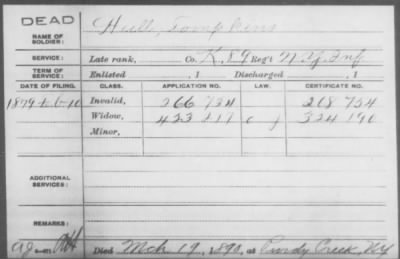 DEAD
NAME OF SOLDIER: Hull, Tompkins
SERVICE: Late rank, Co. K, 89 Reg't N.Y. Inf
TERM OF SERVICE: Enlisted , 1 Discharged , 1
DATE OF FILING. CLASS. APPLICATION NO. LAW. CERTIFICATE NO.
Invalid, 266 734 208 734
Widow, 423 217 324 190
Minor,
ADDITIONAL SERVICES:
REMARKS:
Died Mch 19, 1890, at Purdy Creek, N.Y.